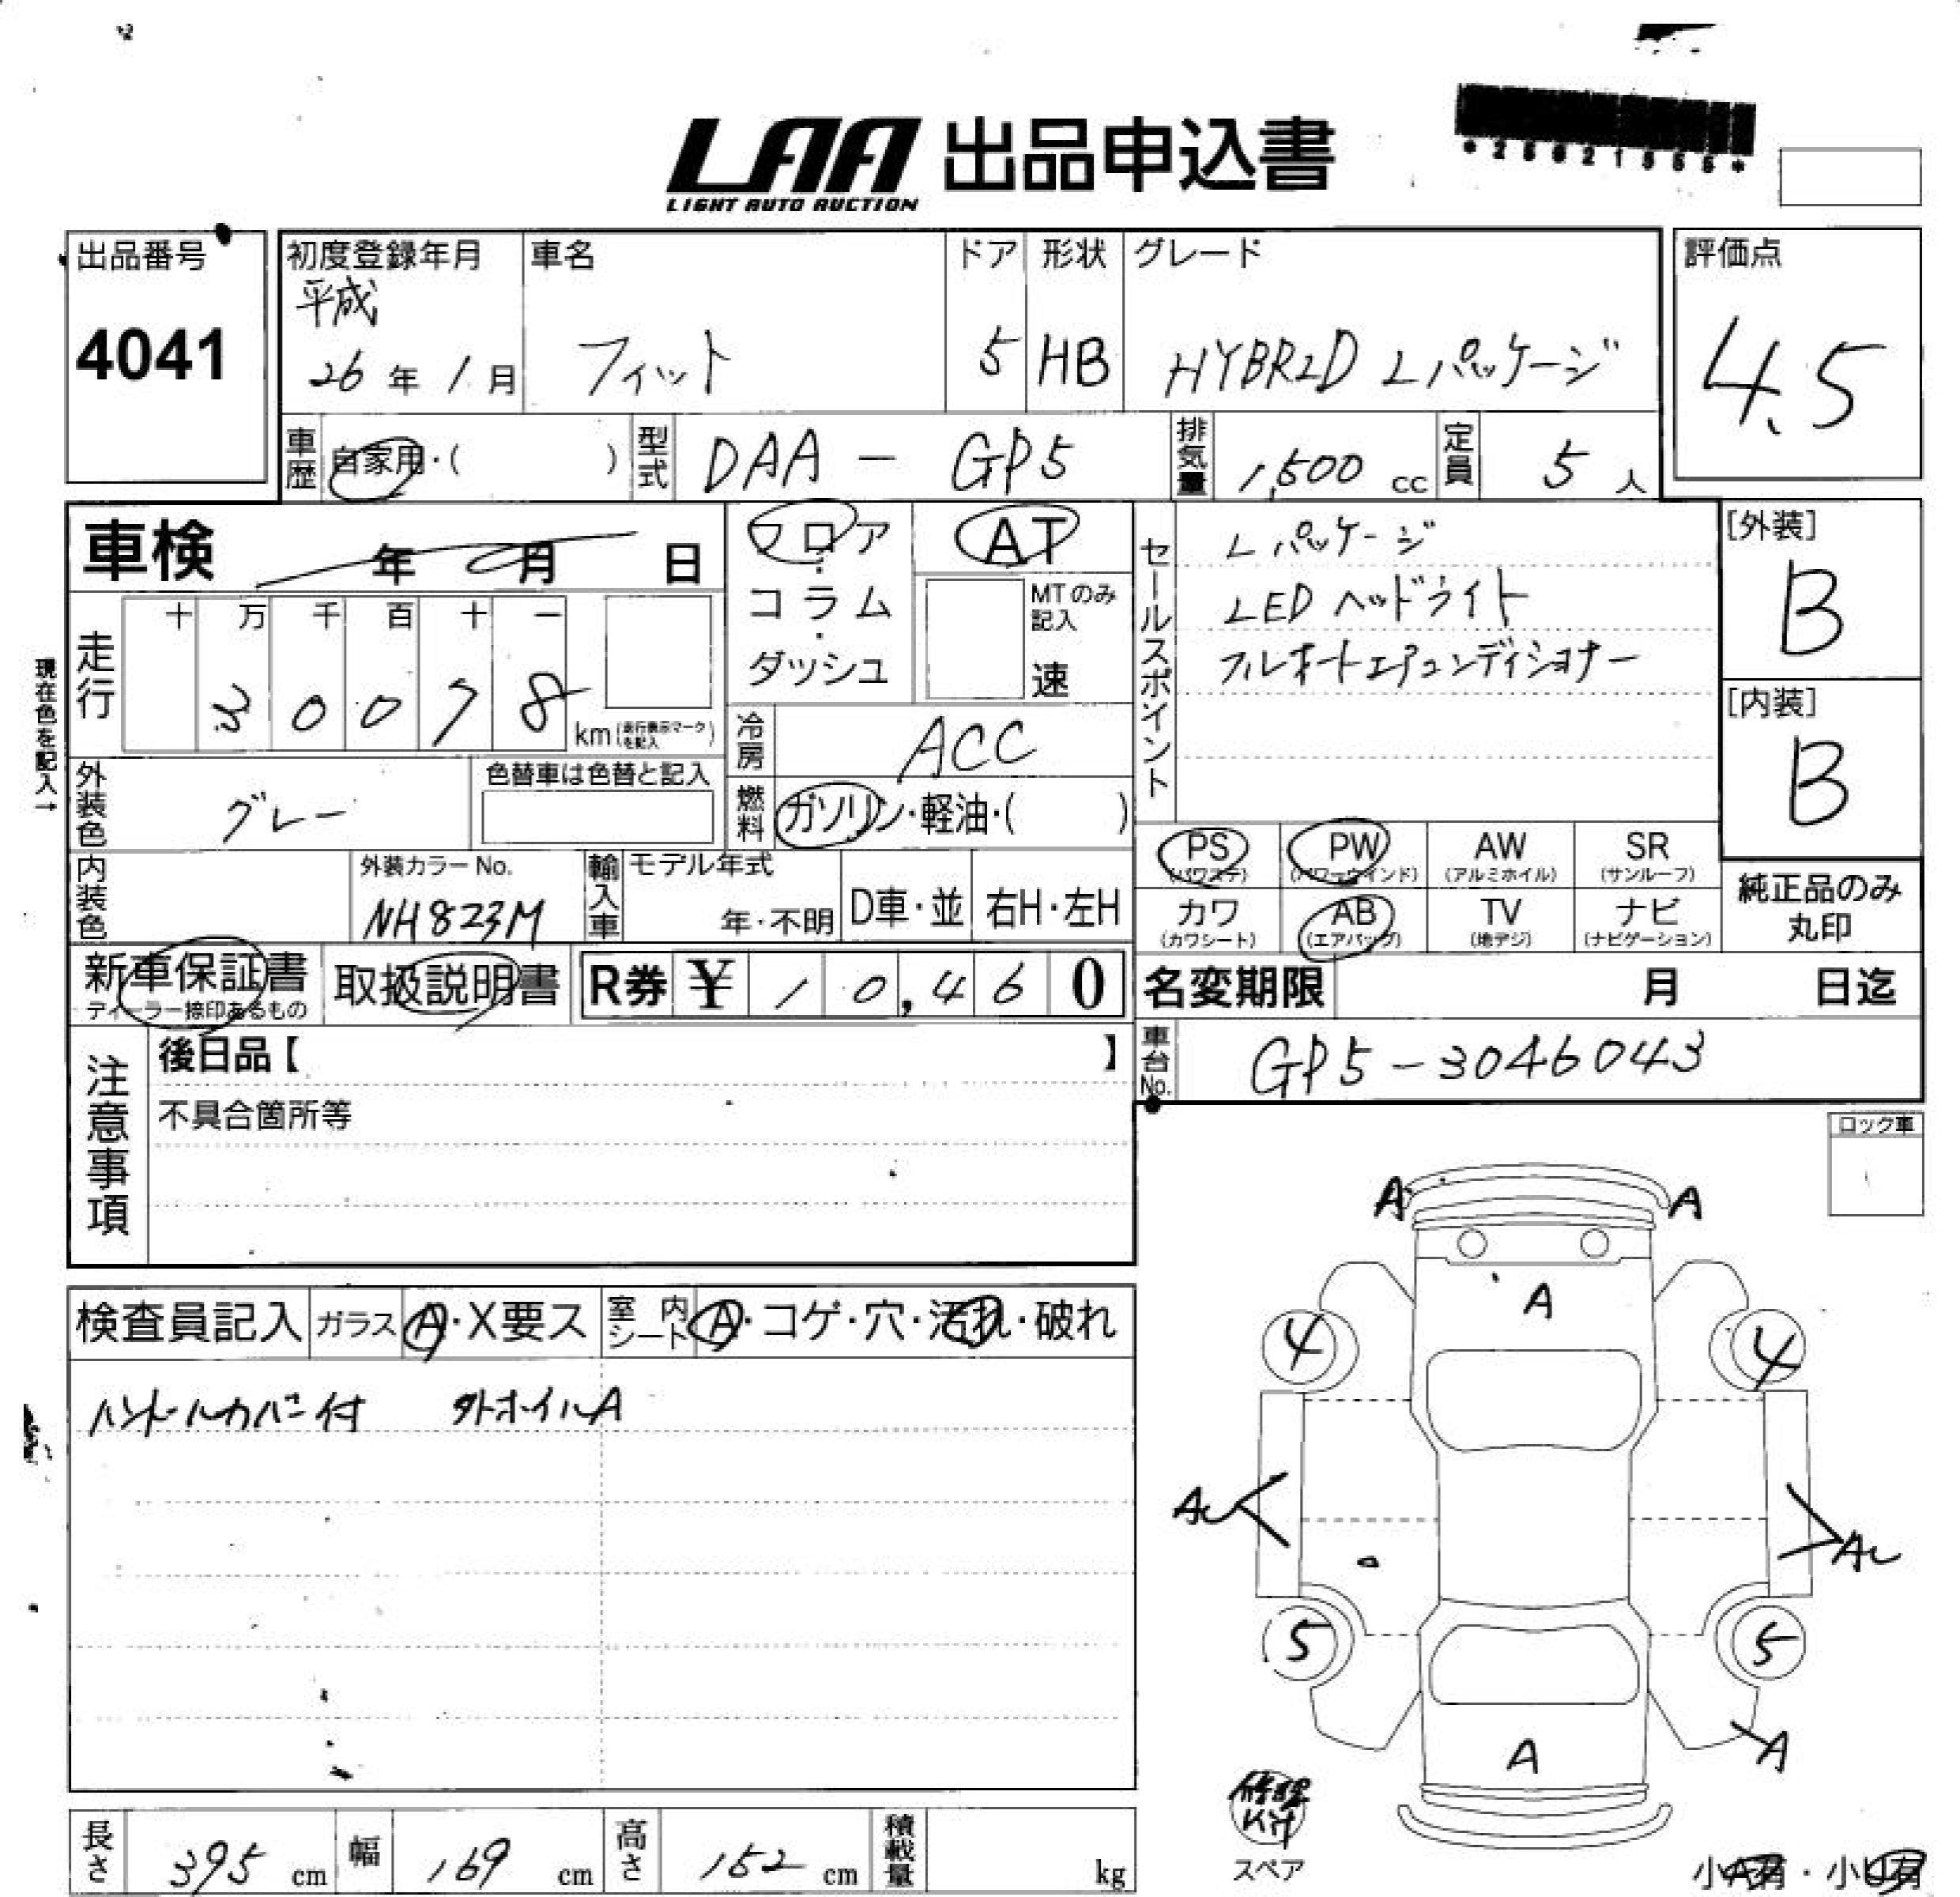 LAA 出品申込書
LIGHT AUTO AUCTION
出品番号
4041
初度登録年月
平成
26年 1月
車名
フィット
ドア
5
形状
HB
グレード
HYBRID Lパッケージ
評価点
4.5
車歴
自家用・( )
型式
DAA - GP5
排気量
1,500 cc
定員
5 人
車検 年 月 日
フロア・コラム・ダッシュ
AT
MTのみ記入
速
セールスポイント
Lパッケージ
LEDヘッドライト
フルオートエアコンディショナー
[外装]
B
[内装]
B
現在色を記入→
走行
十 万 千 百 十 一
3 0 0 7 8
km (走行表示マークを記入)
冷房
ACC
燃料
ガソリン・軽油・( )
外装色
グレー
色替車は色替と記入
内装色
外装カラーNo.
NH823M
輸入車
モデル年式
年・不明
D車・並
右H・左H
PS (パワステ)
PW (パワーウインド)
AW (アルミホイル)
SR (サンルーフ)
カワ (カワシート)
AB (エアバッグ)
TV (地デジ)
ナビ (ナビゲーション)
純正品のみ丸印
新車保証書
ディーラー捺印あるもの
取扱説明書
R券 ¥ 10,460
名変期限 月 日迄
車台No.
GP5-3046043
注意事項
後日品【 】
不具合箇所等
ロック車
検査員記入
ガラス A・X要ス
室内シート A・コゲ・穴・汚れ・破れ
ハンドルカバー付 外ホイルA
A A
A
4 4
5 5
A
A
修理Kit
スペア
長さ 395 cm
幅 169 cm
高さ 152 cm
積載量 kg
小A有・小U有